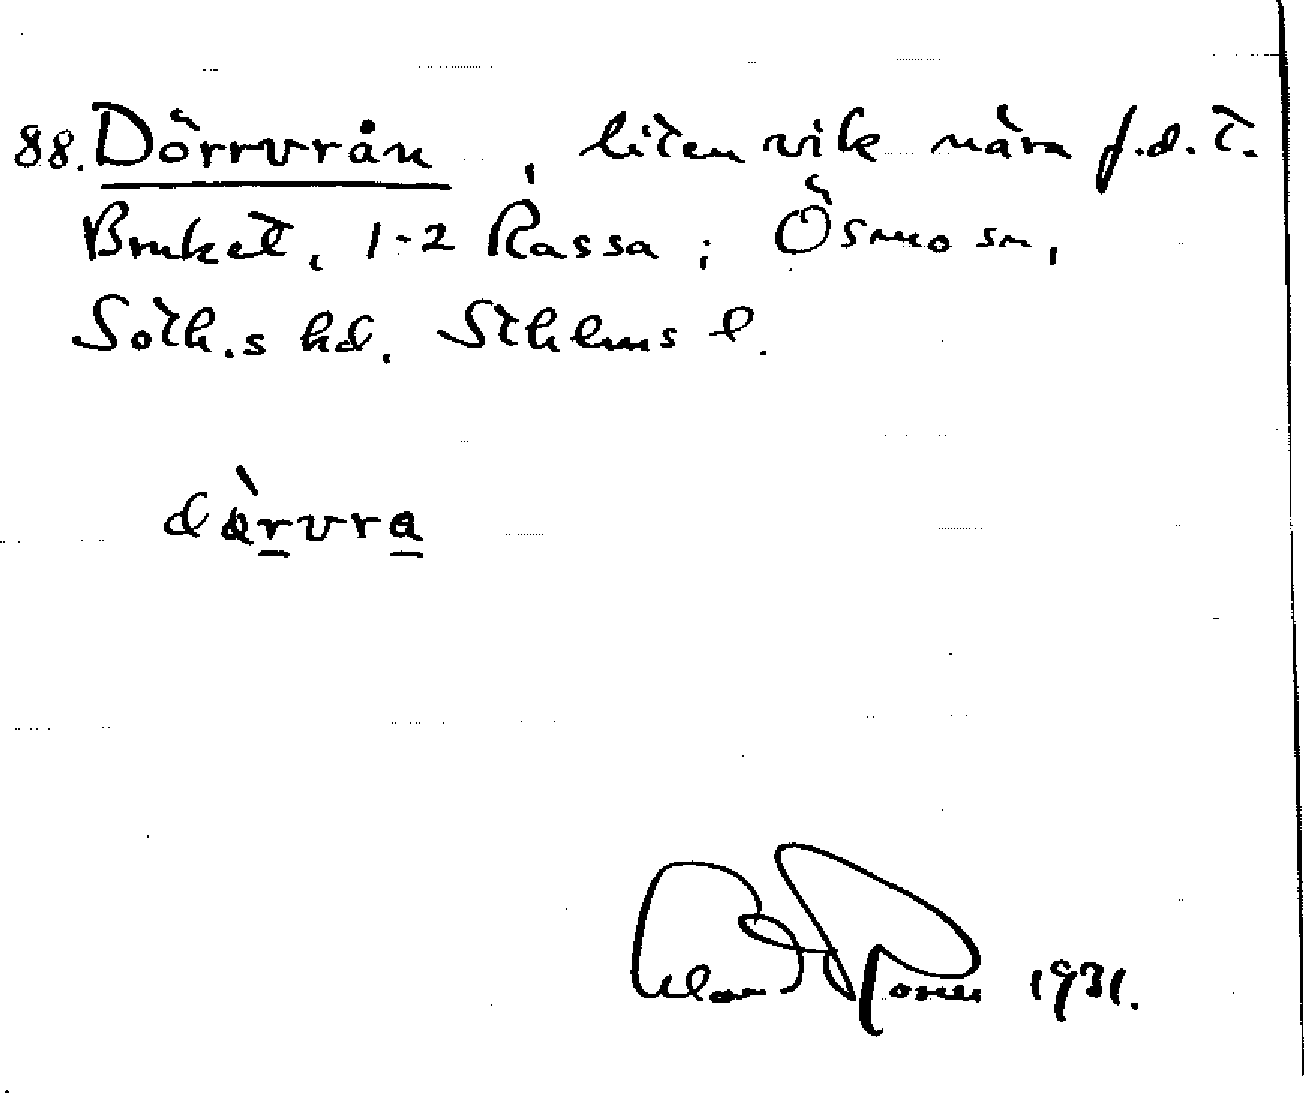 88. Dörrvrån, liten vik nära f.d. t.
Bruket, 1-2 Rassa; Ösmo sn,
Soth.s hd. Sthlms l.
dàrvra
1931.